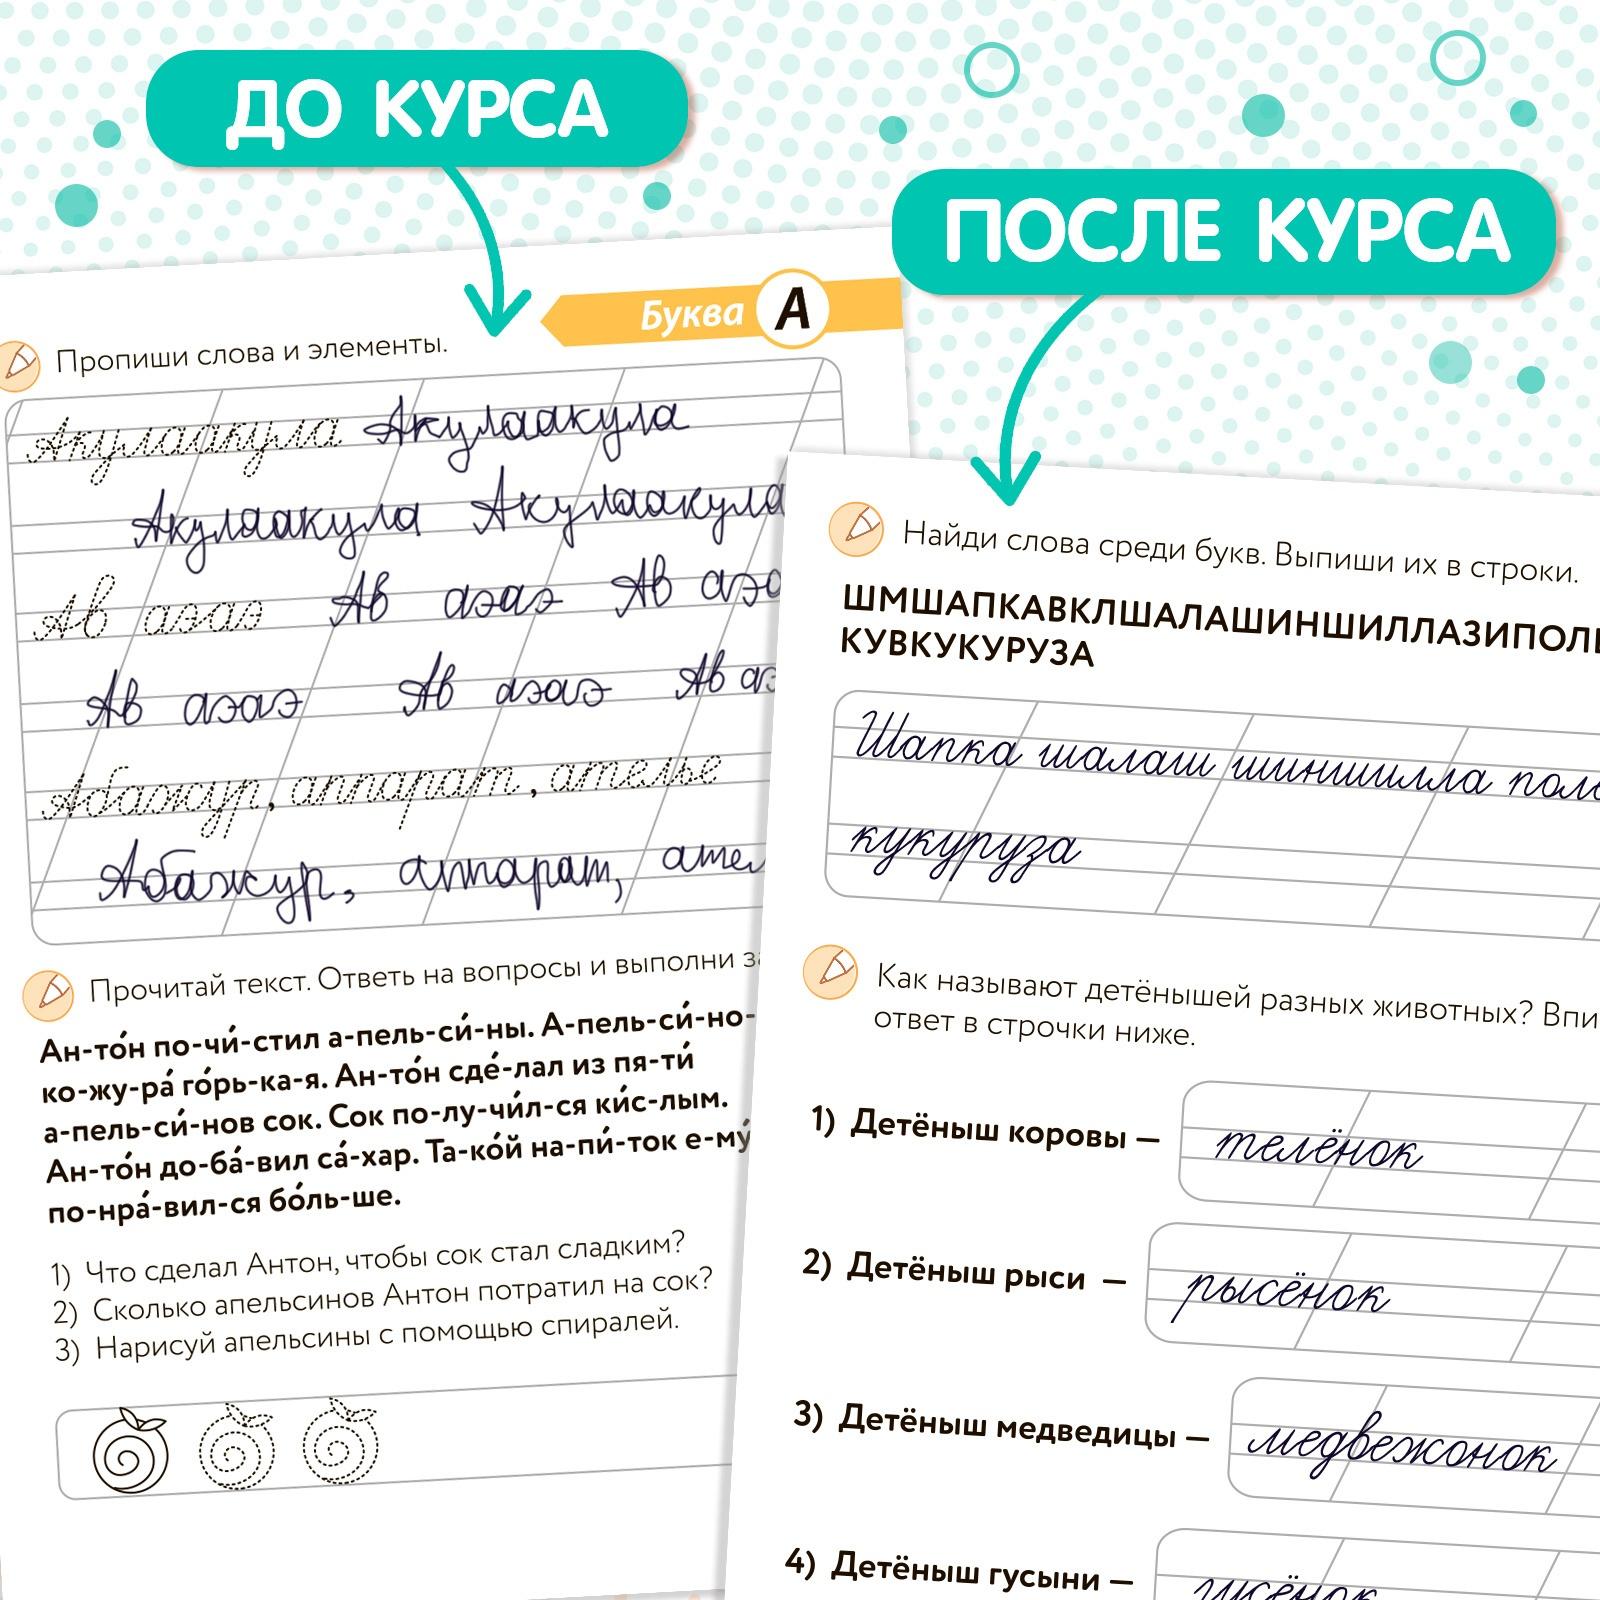 ДО КУРСА
ПОСЛЕ КУРСА
Буква А
Пропиши слова и элементы.
Акулаакула Акулаакула
Акулаакула Акулаакула
Ав аэаэ Ав аэаэ Ав аэа
Ав аэаэ Ав аэаэ Ав аэ
Абажур, аппарат, ателье
Абажур, аппарат, ател
Прочитай текст. Ответь на вопросы и выполни за
Ан-то́н по-чи́-стил а-пель-си́-ны. А-пель-си́-но-
ко-жу-ра́ го́рь-ка-я. Ан-то́н сде́-лал из пя-ти́
а-пель-си́-нов сок. Сок по-лу-чи́л-ся ки́с-лым.
Ан-то́н до-ба́-вил са́-хар. Та-ко́й на-пи́-ток е-му́
по-нра́-вил-ся бо́ль-ше.
1) Что сделал Антон, чтобы сок стал сладким?
2) Сколько апельсинов Антон потратил на сок?
3) Нарисуй апельсины с помощью спиралей.
Найди слова среди букв. Выпиши их в строки.
ШМШАПКАВКЛШАЛАШИНШИЛЛАЗИПОЛ
КУВКУКУРУЗА
Шапка шалаш шиншилла пол
кукуруза
Как называют детёнышей разных животных? Впи
ответ в строчки ниже.
1) Детёныш коровы — телёнок
2) Детёныш рыси — рысёнок
3) Детёныш медведицы — медвежонок
4) Детёныш гусыни — гусёнок